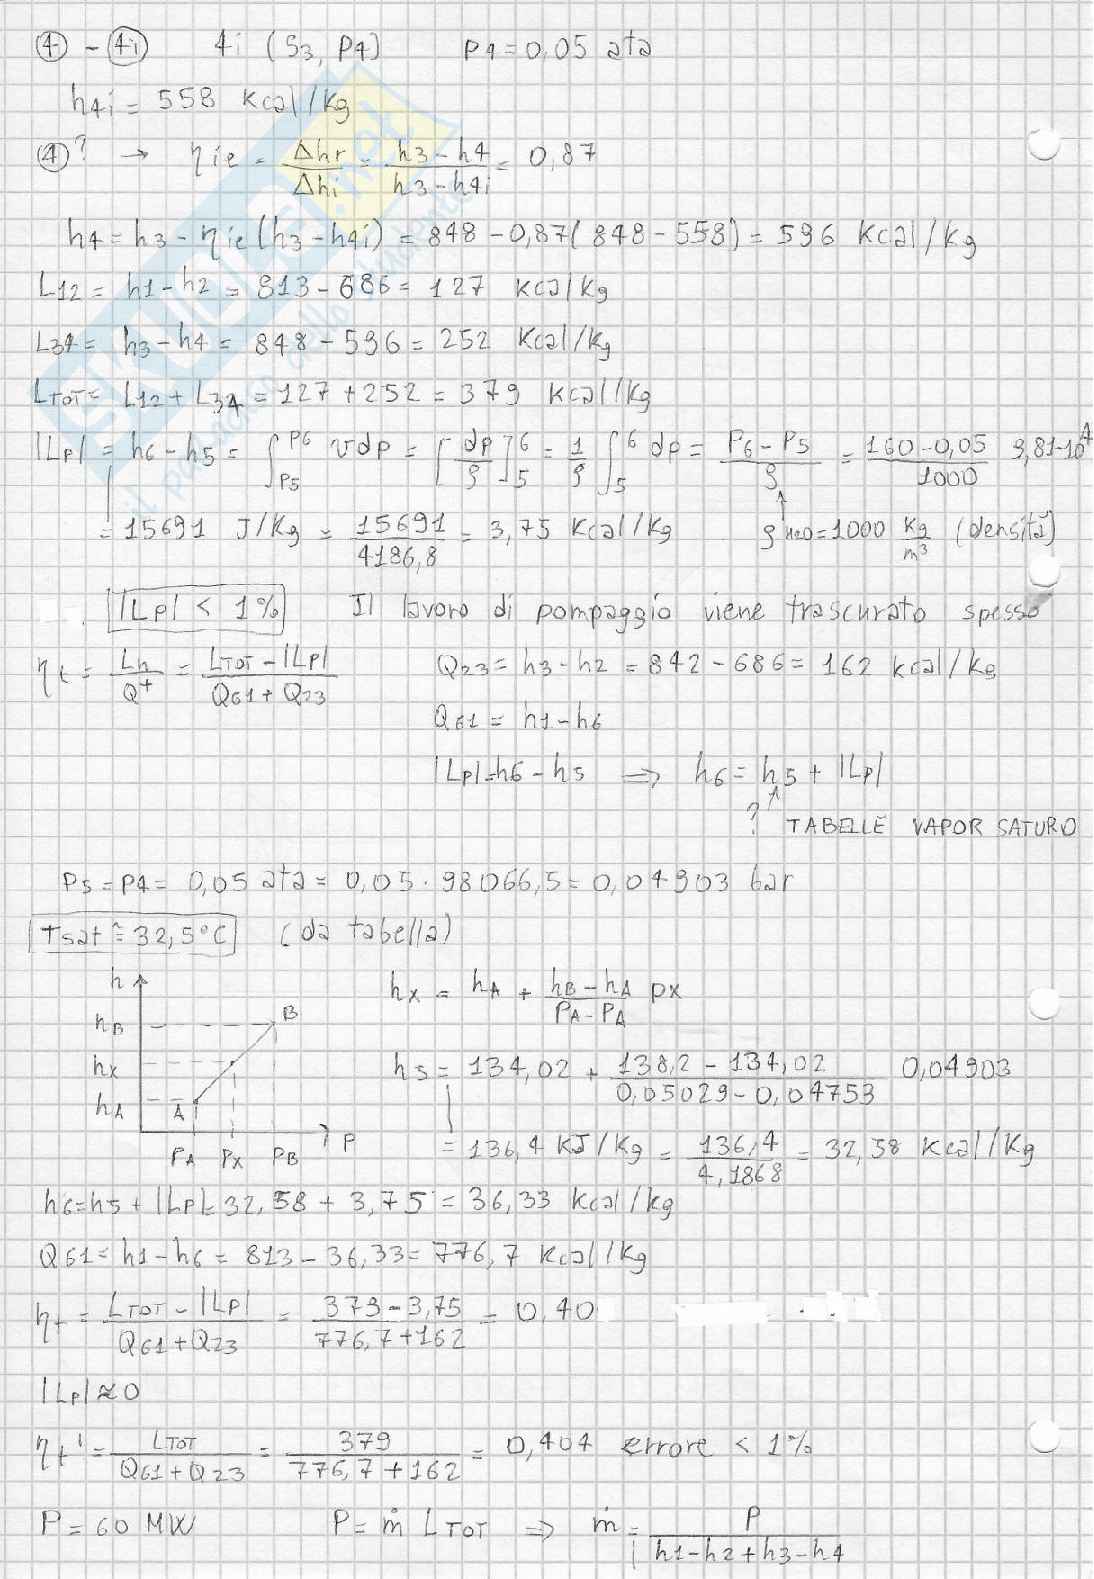 ④ - ④i 4i (S3, P4) P4 = 0,05 ata
h4i = 558 Kcal/Kg
④? → ηie = Δhr/Δhi = (h3-h4)/(h3-h4i) = 0,87
h4 = h3 - ηie (h3-h4i) = 848 - 0,87(848-558) = 596 Kcal/Kg
L12 = h1-h2 = 813-686 = 127 Kcal/Kg
L34 = h3-h4 = 848-596 = 252 Kcal/Kg
LTOT = L12 + L34 = 127+252 = 379 Kcal/Kg
|Lp| = h6-h5 = ∫P5^P6 vdp = [∫dp/ρ]5^6 = 1/ρ ∫5^6 dp = (P6-P5)/ρ = (160-0,05)/1000 9,81·10^4
= 15691 J/Kg = 15691/4186,8 = 3,75 Kcal/Kg ρH2O = 1000 Kg/m³ (densità)
|Lp| < 1% Il lavoro di pompaggio viene trascurato spesso
ηt = Ln/Q+ = (LTOT-|Lp|)/(Q61+Q23) Q23 = h3-h2 = 842-686 = 162 Kcal/Kg
Q61 = h1-h6
|Lp| = h6-h5 ⇒ h6 = h5 + |Lp|
? TABELLE VAPOR SATURO
P5 = P4 = 0,05 ata = 0,05·98066,5 = 0,04903 bar
Tsat ≅ 32,5°C (da tabella)
h hB hx hA A B PA Px PB P
hx = hA + (hB-hA)/(PA-PA) px
h5 = 134,02 + (138,2-134,02)/(0,05029-0,04753) 0,04903
= 136,4 KJ/Kg = 136,4/4,1868 = 32,58 Kcal/Kg
h6 = h5 + |Lp| = 32,58 + 3,75 = 36,33 Kcal/Kg
Q61 = h1-h6 = 813-36,33 = 776,7 Kcal/Kg
ηt = (LTOT-|Lp|)/(Q61+Q23) = (379-3,75)/(776,7+162) = 0,40
|Lp| ≈ 0
ηt' = LTOT/(Q61+Q23) = 379/(776,7+162) = 0,404 errore < 1%
P = 60 MW P = ṁ LTOT ⇒ ṁ = P/(h1-h2+h3-h4)